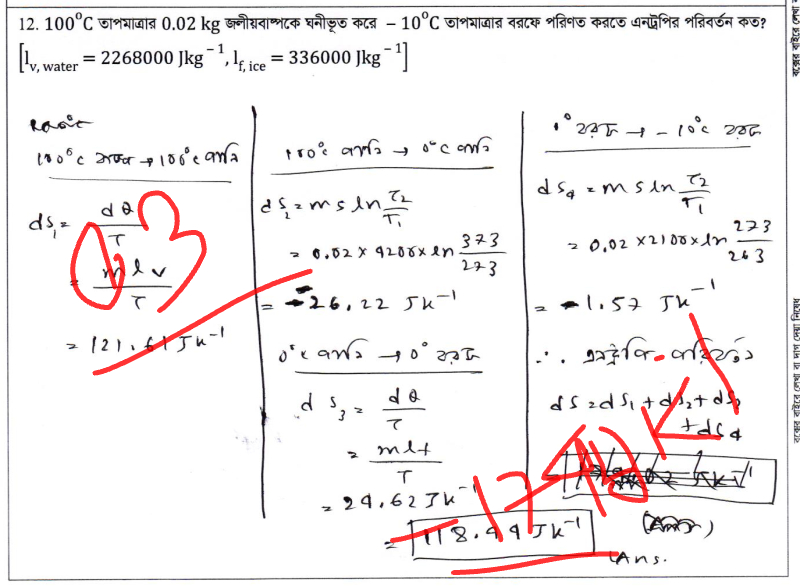 12. 100°C তাপমাত্রার 0.02 kg জলীয়বাষ্পকে ঘনীভূত করে – 10°C তাপমাত্রার বরফে পরিণত করতে এনট্রপির পরিবর্তন কত?
[l_v, water = 2268000 Jkg⁻¹, l_f, ice = 336000 Jkg⁻¹]
100°C → 100°C পানি
dS₁ = dQ/T
= m l v/T
= 121.61 Jk⁻¹
0.3
100°C পানি → 0°C পানি
dS₂ = m s ln T₂/T₁
= 0.02 × 4200 × ln 373/273
= -26.22 Jk⁻¹
0°C পানি → 0° বরফ
dS₃ = dQ/T
= mlf/T
= 24.62 Jk⁻¹
= 118.44 Jk⁻¹
Ans.
বরফ → -10°C বরফ
dS₄ = m s ln T₂/T₁
= 0.02 × 2100 × ln 273/263
= -1.57 Jk⁻¹
∴ এনট্রপি পরিবর্তন
dS = dS₁ + dS₂ + dS₃
+ dS₄
বক্সের বাইরে লেখা বা দাগ দেয়া নিষেধ
বক্সের বাইরে লেখা